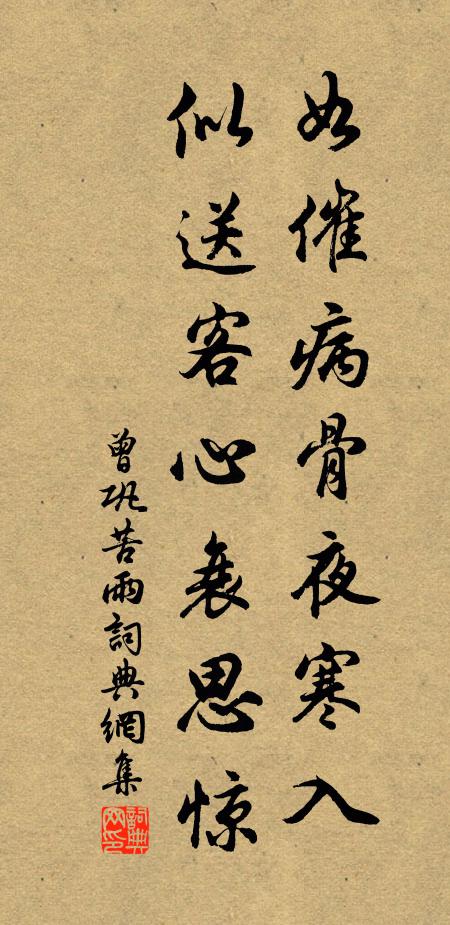 如催病骨夜寒入
似送客心衰思惊
曾巩苦雨詞典網集
詞典网印